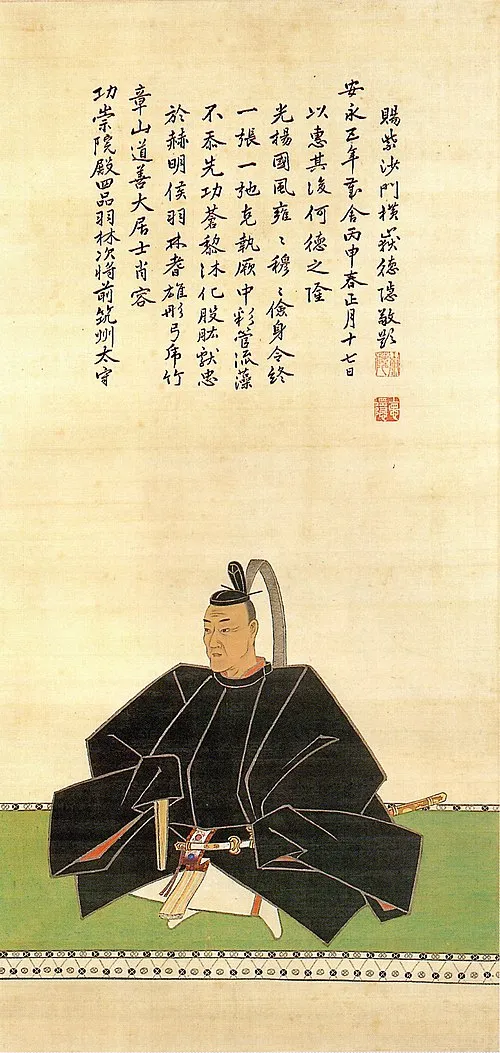 功崇院殿四品羽林次将前筑州太守
章山道善大居士肖容
於赫明侯羽林耆雄彤弓虎竹
不忝先功蒼黎沐化股肱獻忠
一張一弛克執厥中彩管流藻
光楊國風雍〻穆〻儉身令終
以惠其後何德之隆
安永五年歲舍丙申春正月十七日
賜紫沙門横嶽德隠敬題